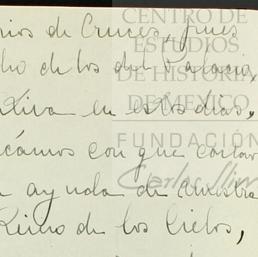 de Cruces, pues
de los del Palacio,
en estos días,
con que contar
ayuda de nuestra
Reino de los Cielos,
CENTRO DE
ESTUDIOS
DE HISTORIA
DE MÉXICO
FUNDACIÓN
Carlos Slim